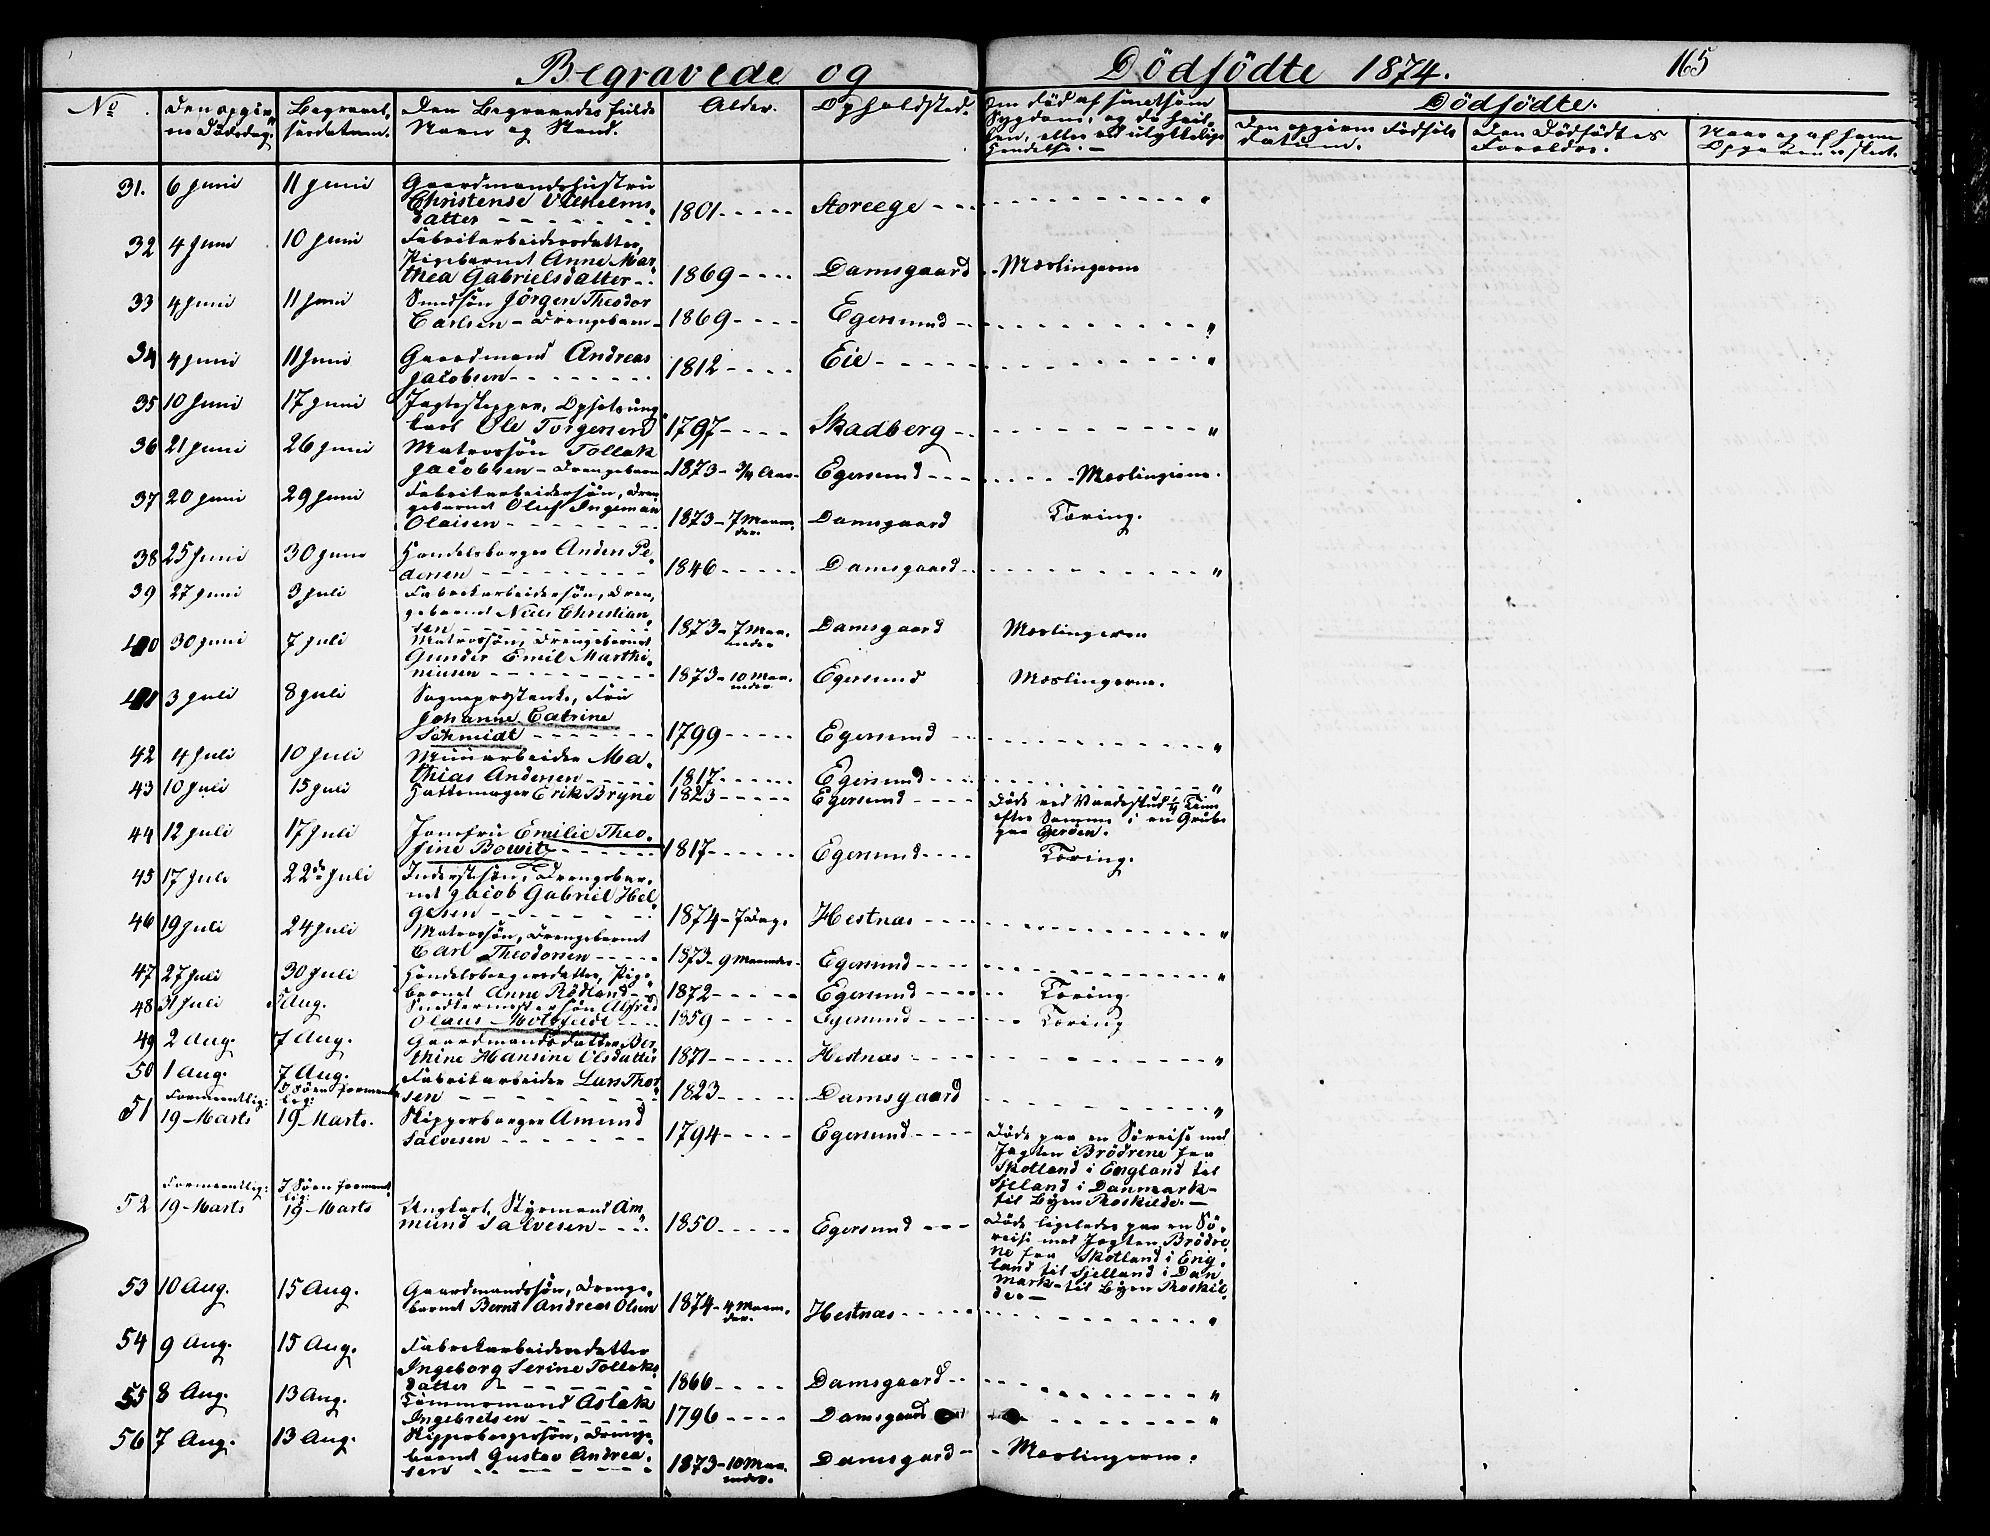 Begravede og Dödfödte 1874. 165
No. Den opgivne Dödsdag. Begravelsesdatum. Den Begravedes fulde Navn og Stand. Alder. Opholdsted. Om död af smitsom Sygdom, og da hvilken, eller ved ulykkelig Hendelse. Dödfödte.
Den opgivne Födsels Datum. Den Dödfödtes Foreldre. Naar og af hvem Opgivelsen skeet.
31. 6 Juni 11 Juni Gaardmandshustru
Christense Vilhelms-
datter 1801 Storeege "
32 4 Juni 10 Juni Fabrikarbeidersdatter,
Pigebarnet Anne Mar-
thea Gabrielsdatter 1869 Damsgaard Mæslingerne
33 4 Juni 11 Juni Smedsön Jörgen Theodor
Carlsen - Drengebarn 1869 Egersund "
34 4 Juni 11 Juni Gaardmand Andreas
Jacobsen 1812 Eie "
35 10 Juni 17 Juni Jagteskipper, Opsetsung-
karl Ole Torgersen 1797 Skadberg "
36 21 Juni 26 Juni Matrossön Tollak
Jacobsen - Drengebarn 1873 - 3/4 Aar Egersund Mæslingerne.
37 20 Juni 29 Juni Fabrikarbeidersön, Dren-
gebarnet Oluf Ingeman
Olaisen 1873 - 7 Maane-
der. Damsgaard Tæring.
38 25 Juni 30 Juni Handelsborger Anders Pe-
dersen 1846 Damsgaard "
39 27 Juni 3 Juli Fabrikarbeidersön, Dren-
gebarnet Niels Christian-
sen 1873 - 7 Maa-
neder Damsgaard Mæslingerne
40 30 Juni 7 Juli Matrossön, Drengebarnet
Gunder Emil Marthi-
niusen 1873 - 10 Maa-
neder Egersund Mæslingerne.
41 3 Juli 8 Juli Sogneprestenke, Fru
Johanne Catrine
Schmidt 1799 Egersund "
42 4 Juli 10 Juli Muurarbeider Ma-
thias Andersen 1817 Egersund "
43 10 Juli 15 Juli Hattemager Erik Bryne 1823 Egersund Döde ved Vaadeskud 1/4 Time
efter Samme i en Grube
paa Egeröen.
44 12 Juli 17 Juli Jomfru Emilie Theo-
fine Bowitz 1817 Egersund Tæring.
45 17 Juli 22de Juli Inderstsön, Drengebar-
net Jacob Gabriel Hel-
gesen 1874 - 7 Dag. Hestnæs "
46 19 Juli 24 Juli Matrossön, Drengebarnet
Carl Theodorsen 1873 - 9 Maaneder Egersund "
47 27 Juli 30 Juli Handelsborgersdatter, Pige-
barnet Anne Rödland 1872 Egersund Tæring
48 31 Juli 5 Aug. Snedkermestersön Alfred
Olaus Motzfeldt 1859 Egersund Tæring
49 2 Aug. 7 Aug. Gaardmandsdatter Ber-
thine Hansine Olsdatter 1871 Hestnæs "
50 1 Aug. 7 Aug. Fabrikarbeider Lars Thor-
sen 1823 Damsgaard "
51 Formentlig: 19 Marts I Söen formentlig: 19 Marts. Skipperborger Amund
Salvesen 1794 Egersund Döde paa en Söreise med
Jagten Brödrene fra
Skotland i England til
Sjelland i Danmark -
til Byen Roskilde. -
52 Formentlig: 19 Marts I Söen formentlig: 19 Marts Ungkarl, Styrmand Am-
mund Salvesen 1850 Egersund Döde ligeledes paa en Sö-
reise med Jagten Brödre-
ne fra Skotland i Eng-
land til Sjelland i Dan
mark - til Byen Roskil-
de. -
53 10 Aug. 15 Aug. Gaardmandssön, Drenge-
barnet Bernt Andreas Olsen 1874 - 4 Maane-
der. Hestnæs "
54 9 Aug. 15 Aug. Fabrikarbeidersdatter
Ingeborg Serine Tollaks-
datter 1866 Damsgaard "
55 8 Aug. 13 Aug. Tömmermand Aslak
Ingebretsen 1796 Damsgaard "
56 7 Aug. 13 Aug. Skipperborgersön, Drenge-
barnet Gustav Andrea-
sen 1873 - 10 Maa-
neder. Damsgaard Mæslingerne.